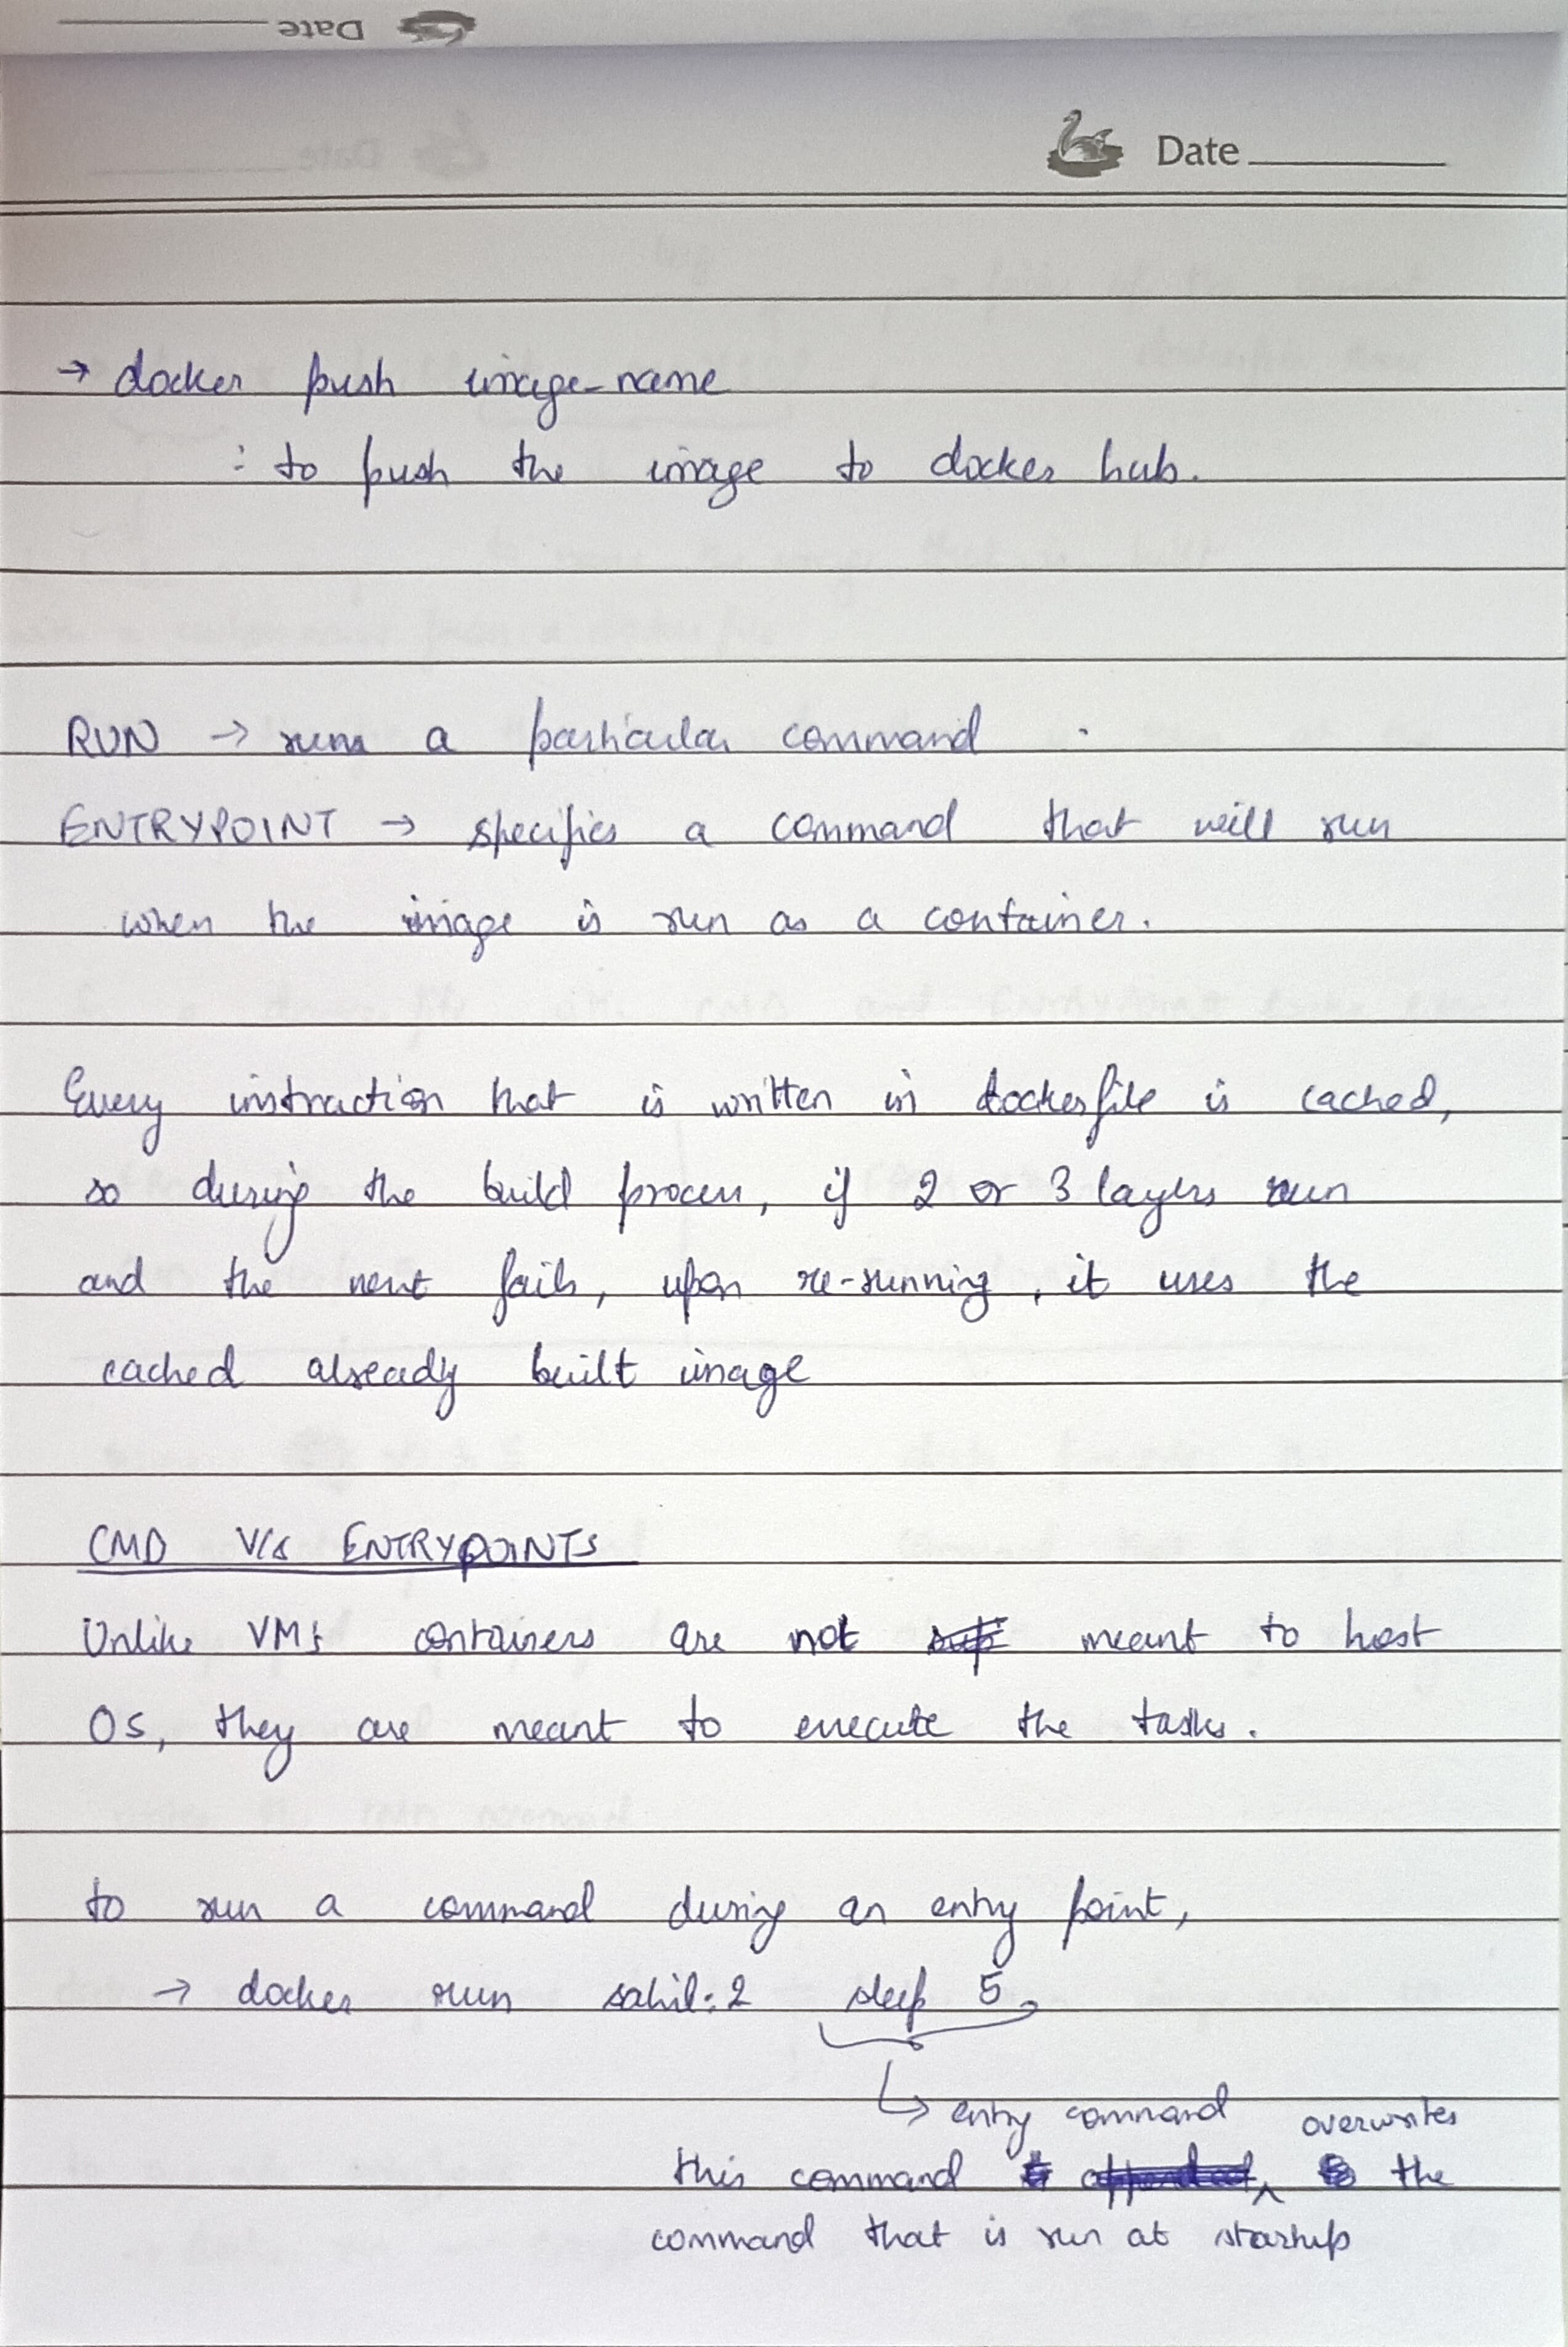 Date
Date
→ docker push image-name
: to push the image to docker hub.
RUN → runs a particular command
ENTRYPOINT → specifies a command that will run
when the image is run as a container.
Every instruction that is written in dockerfile is cached,
so during the build process, if 2 or 3 layers run
and the next fails, upon re-running, it uses the
cached already built image
CMD V/s ENTRYPOINTS
Unlike VMs containers are not meant to host
OS, they are meant to execute the tasks.
to run a command during an entry point,
→ docker run sahil:2 sleep 5
↳ entry command
this command overwrites the
command that is run at startup